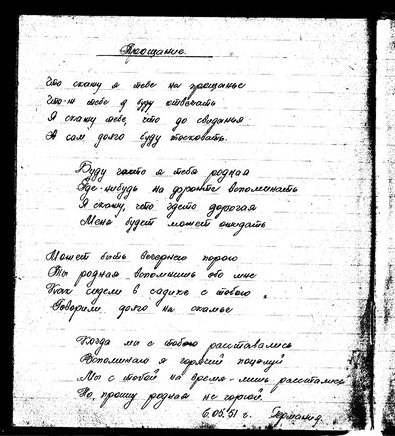 Прощание.
Что скажу я тебе на прощанье
Что-ж тебе я буду отвечать
Я скажу тебе, что до свиданья
А сам долго буду тосковать.
Буду часто я тебя родная
Где-нибудь на дороге вспоминать
Я скажу, что где-то дорогая
Меня будет может ожидать
Может быть вечернею порою
Ты родная вспомнишь обо мне
Как сидели в садике с тобою
Говорили долго на скамье
Когда мы с тобою расставались
Вспоминаю я горячий поцелуй
Мы с тобой на время-лишь расстались
Но, прошу родная не горюй.
6.05.51 г. Германия